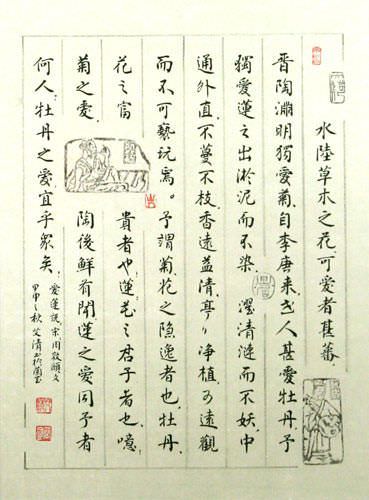 水陸草木之花可愛者甚蕃
晉陶淵明獨愛菊、自李唐来、世人甚愛牡丹、予
獨愛蓮之出淤泥而不染、濯清漣而不妖、中
通外直、不蔓不枝、香遠益清、亭〻净植、可遠觀
而不可褻玩焉、予謂菊、花之隐逸者也、牡丹、
花之富貴者也、蓮、花之君子者也、噫、
菊之愛、陶後鮮有聞、蓮之愛、同予者
何人、牡丹之愛、宜乎眾矣、
愛蓮說、宋周敦頤文
甲申秋